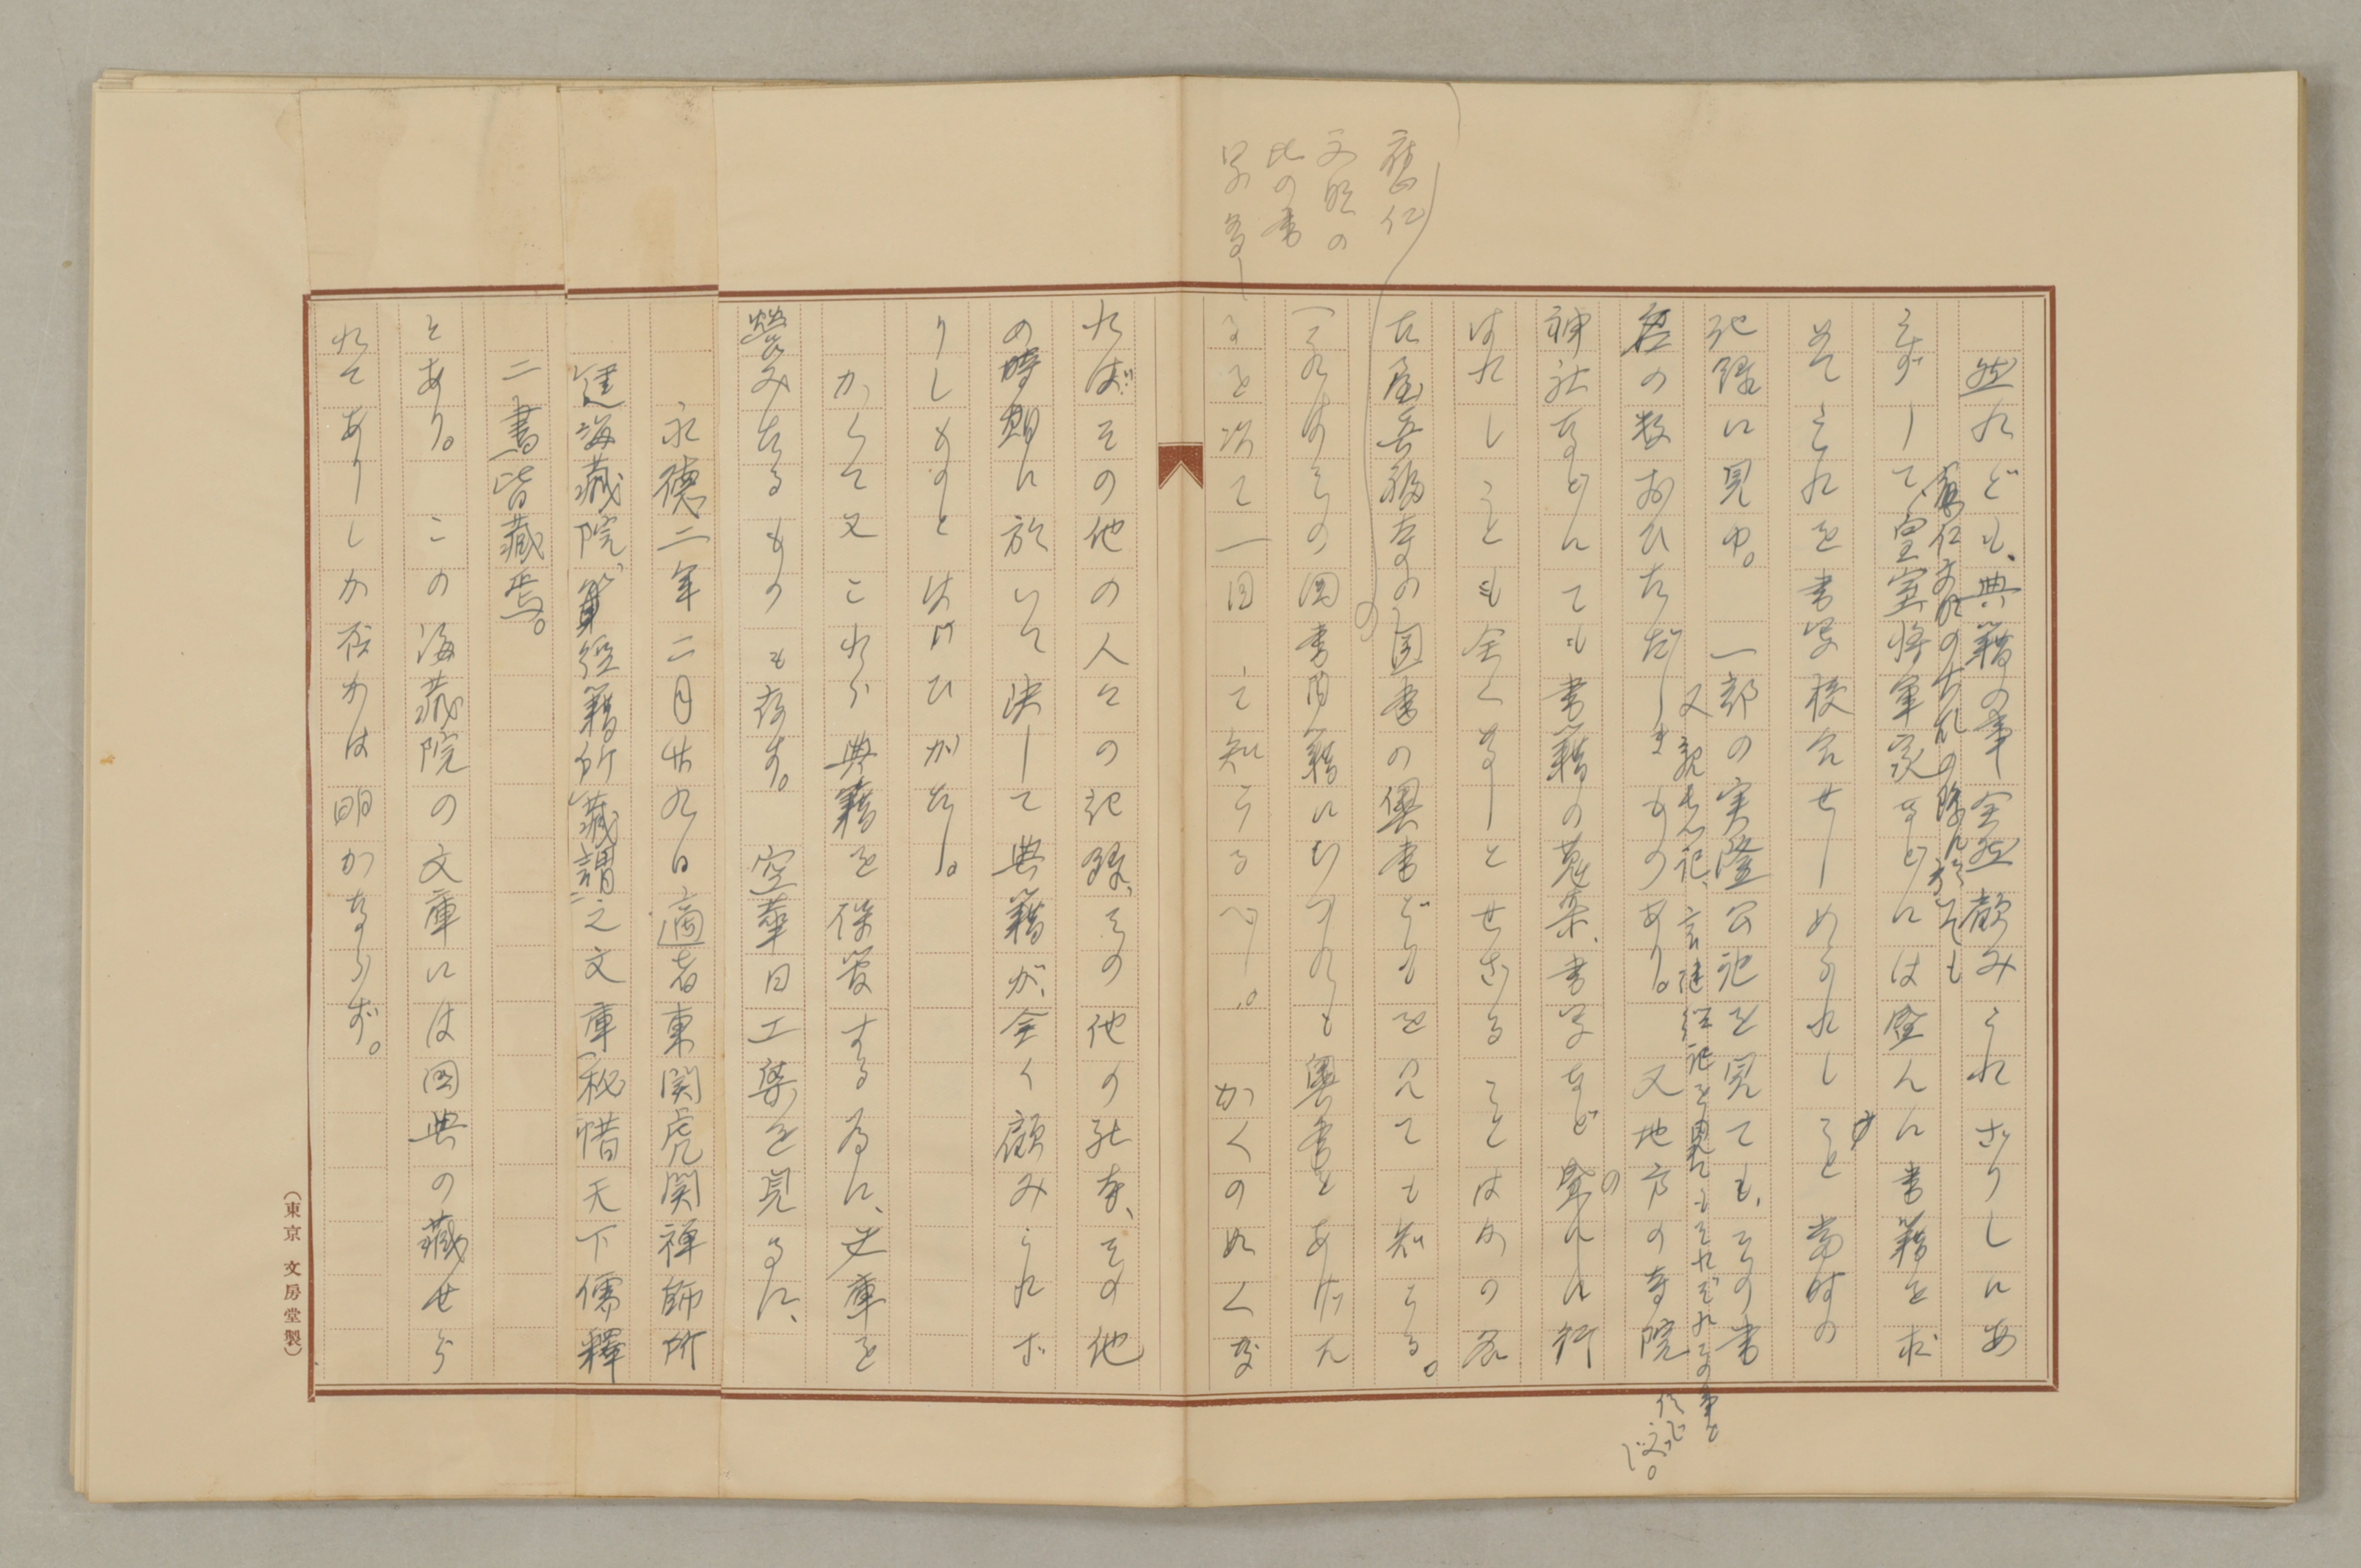 然れども、典籍の事全然顧みられざりしにあ
らずして、皇室将軍家などには盛んに書籍を求
應仁文明の大乱の際に於ても
めてこれを書写校合せしめられしこと当時の
記録に見ゆ。一部の実隆公記を見ても、その書
又親長記、言継
記を見てもそれぞれその事を
伝
の数おびたゞしきものあり。又地方の寺院
神社などにても書籍の蒐集、書写などの盛んに行
はれしことも全くなしとせざることはかの名
古屋真福寺の国書の奥書どもを見ても知らる。
應仁
文明の
比の書
写多し
の国書典籍にも奥書を
るを以て一
て知らるべし。かくの如くな
ればその他の人々の記録、その他の社寺、その他
の時期に於いて決して典籍が全く顧みられざ
りしものとはいひがたし。
かくて又これら典籍を保管する為に、文庫を
営みたるものも存す。空華日工集を見るに、
永徳二年二月廿九日適者東関虎関禅師所
建海蔵院、算経籍所蔵謂之文庫秘惜天下儒釋
二書皆蔵焉。
とあり。この海蔵院の文庫には国典の蔵せら
れてありしか否かは明かならず。
（東京 文房堂製）